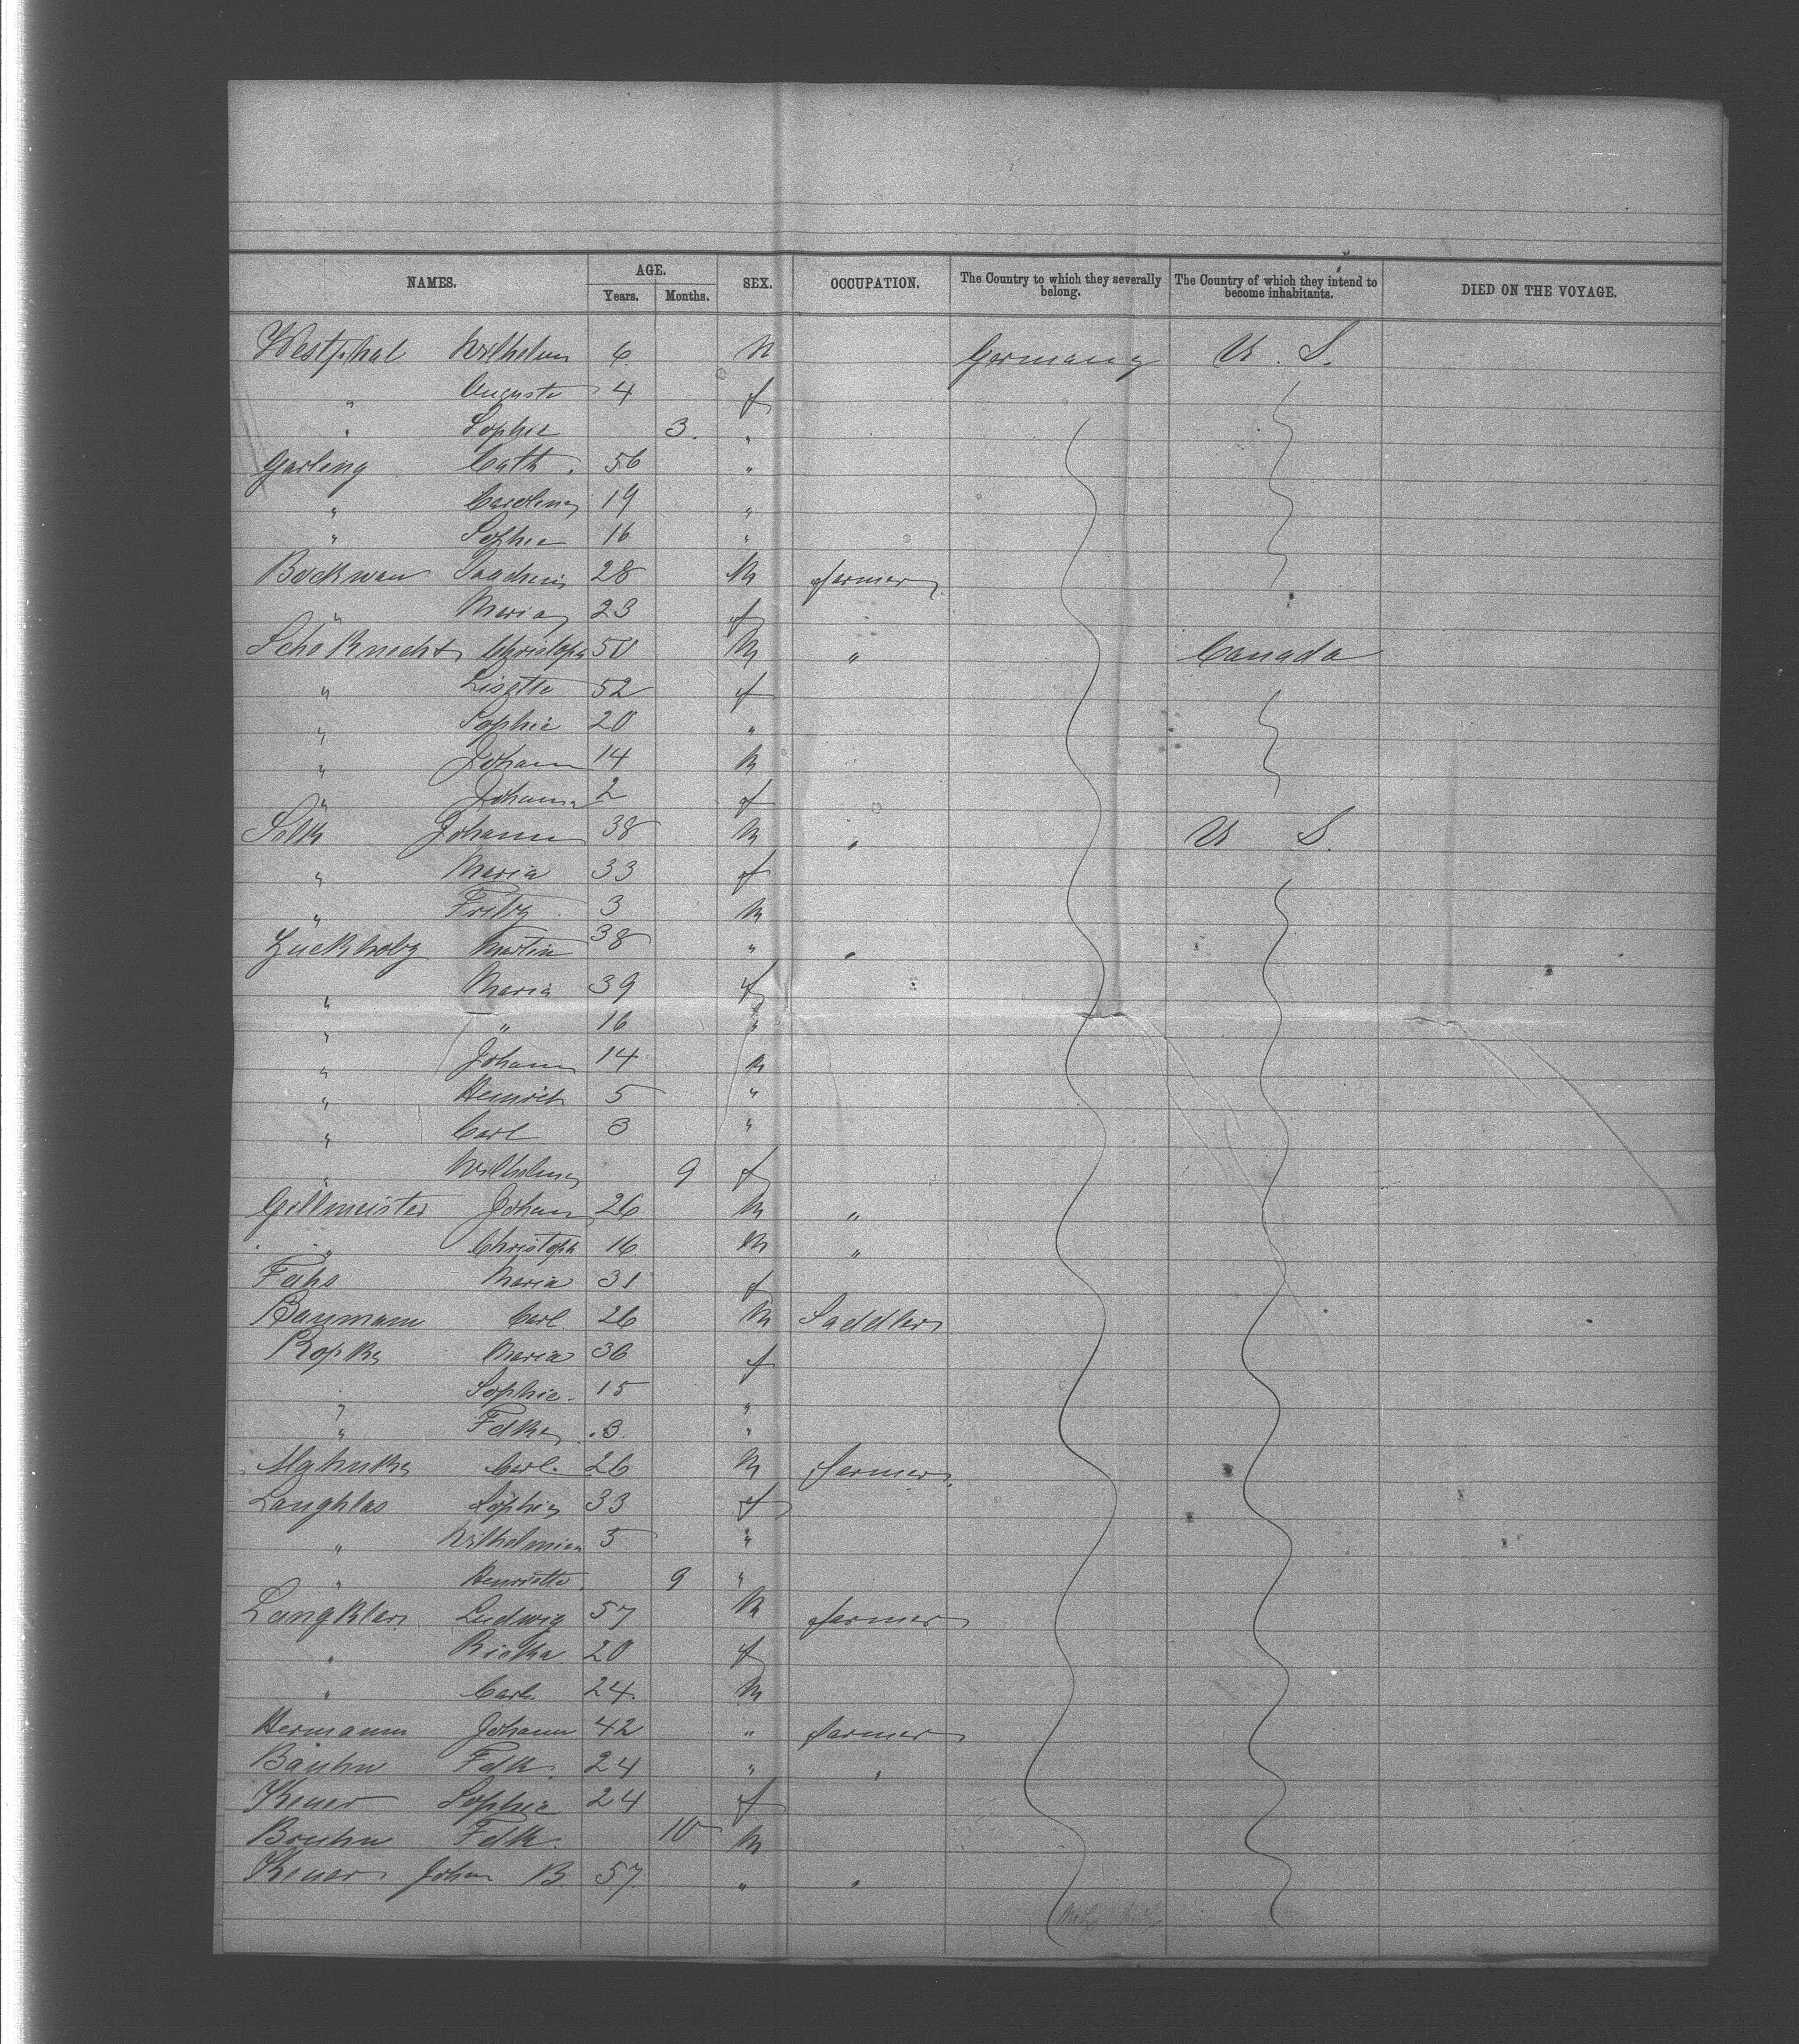 NAMES. AGE. Years. Months. SEX. OCCUPATION. The Country to which they severally belong. The Country of which they intend to become inhabitants. DIED ON THE VOYAGE.
Westphal Wilhelm 6 M Germany U. S.
" Auguste 4 f
" Sophie 3. "
Garling Cath. 56 "
" Carolina 19 "
" Sophie 16 "
Bockman Joachim 28 M farmer
" Maria 23 f
Schöknecht Christoph 50 M " Canada
" Lisette 52 f
" Sophie 20 "
" Johann 14 M
" Johanna 2 f
Selk Johann 38 M " U S.
" Maria 33 f
" Fritz 3 M
Zückholz Martin 38 " "
" Maria 39 f
" " 16 "
" Johann 14 M
" Heinrich 5 "
" Carl 3 "
" Wilhelmi 9 f
Gillmeister Johan 26 M "
" Christoph 16 M "
Fehs Maria 31 f
Baumann Carl 26 M Saddler
Ropke Maria 36 f
" Sophie. 15 "
" Fdke 3. "
Mahnke Carl. 26 M farmer
Langhlas Sophia 33 f
" Wilhelmien 5 "
" Henriette. 9 "
Langklas Ludwig 57 M farmer
" Rieka 20 f
" Carl. 24. M
Hermann Johann 42 " farmer
Bruhn Fdk. 24 " "
Kruer Sophie 24 f
Bruhn Fdk. 10 M
Kruer Johan B. 57. " "